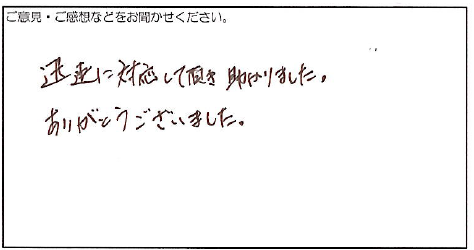 ご意見・ご感想などをお聞かせください。
迅速に対応して頂き助かりました。
ありがとうございました。